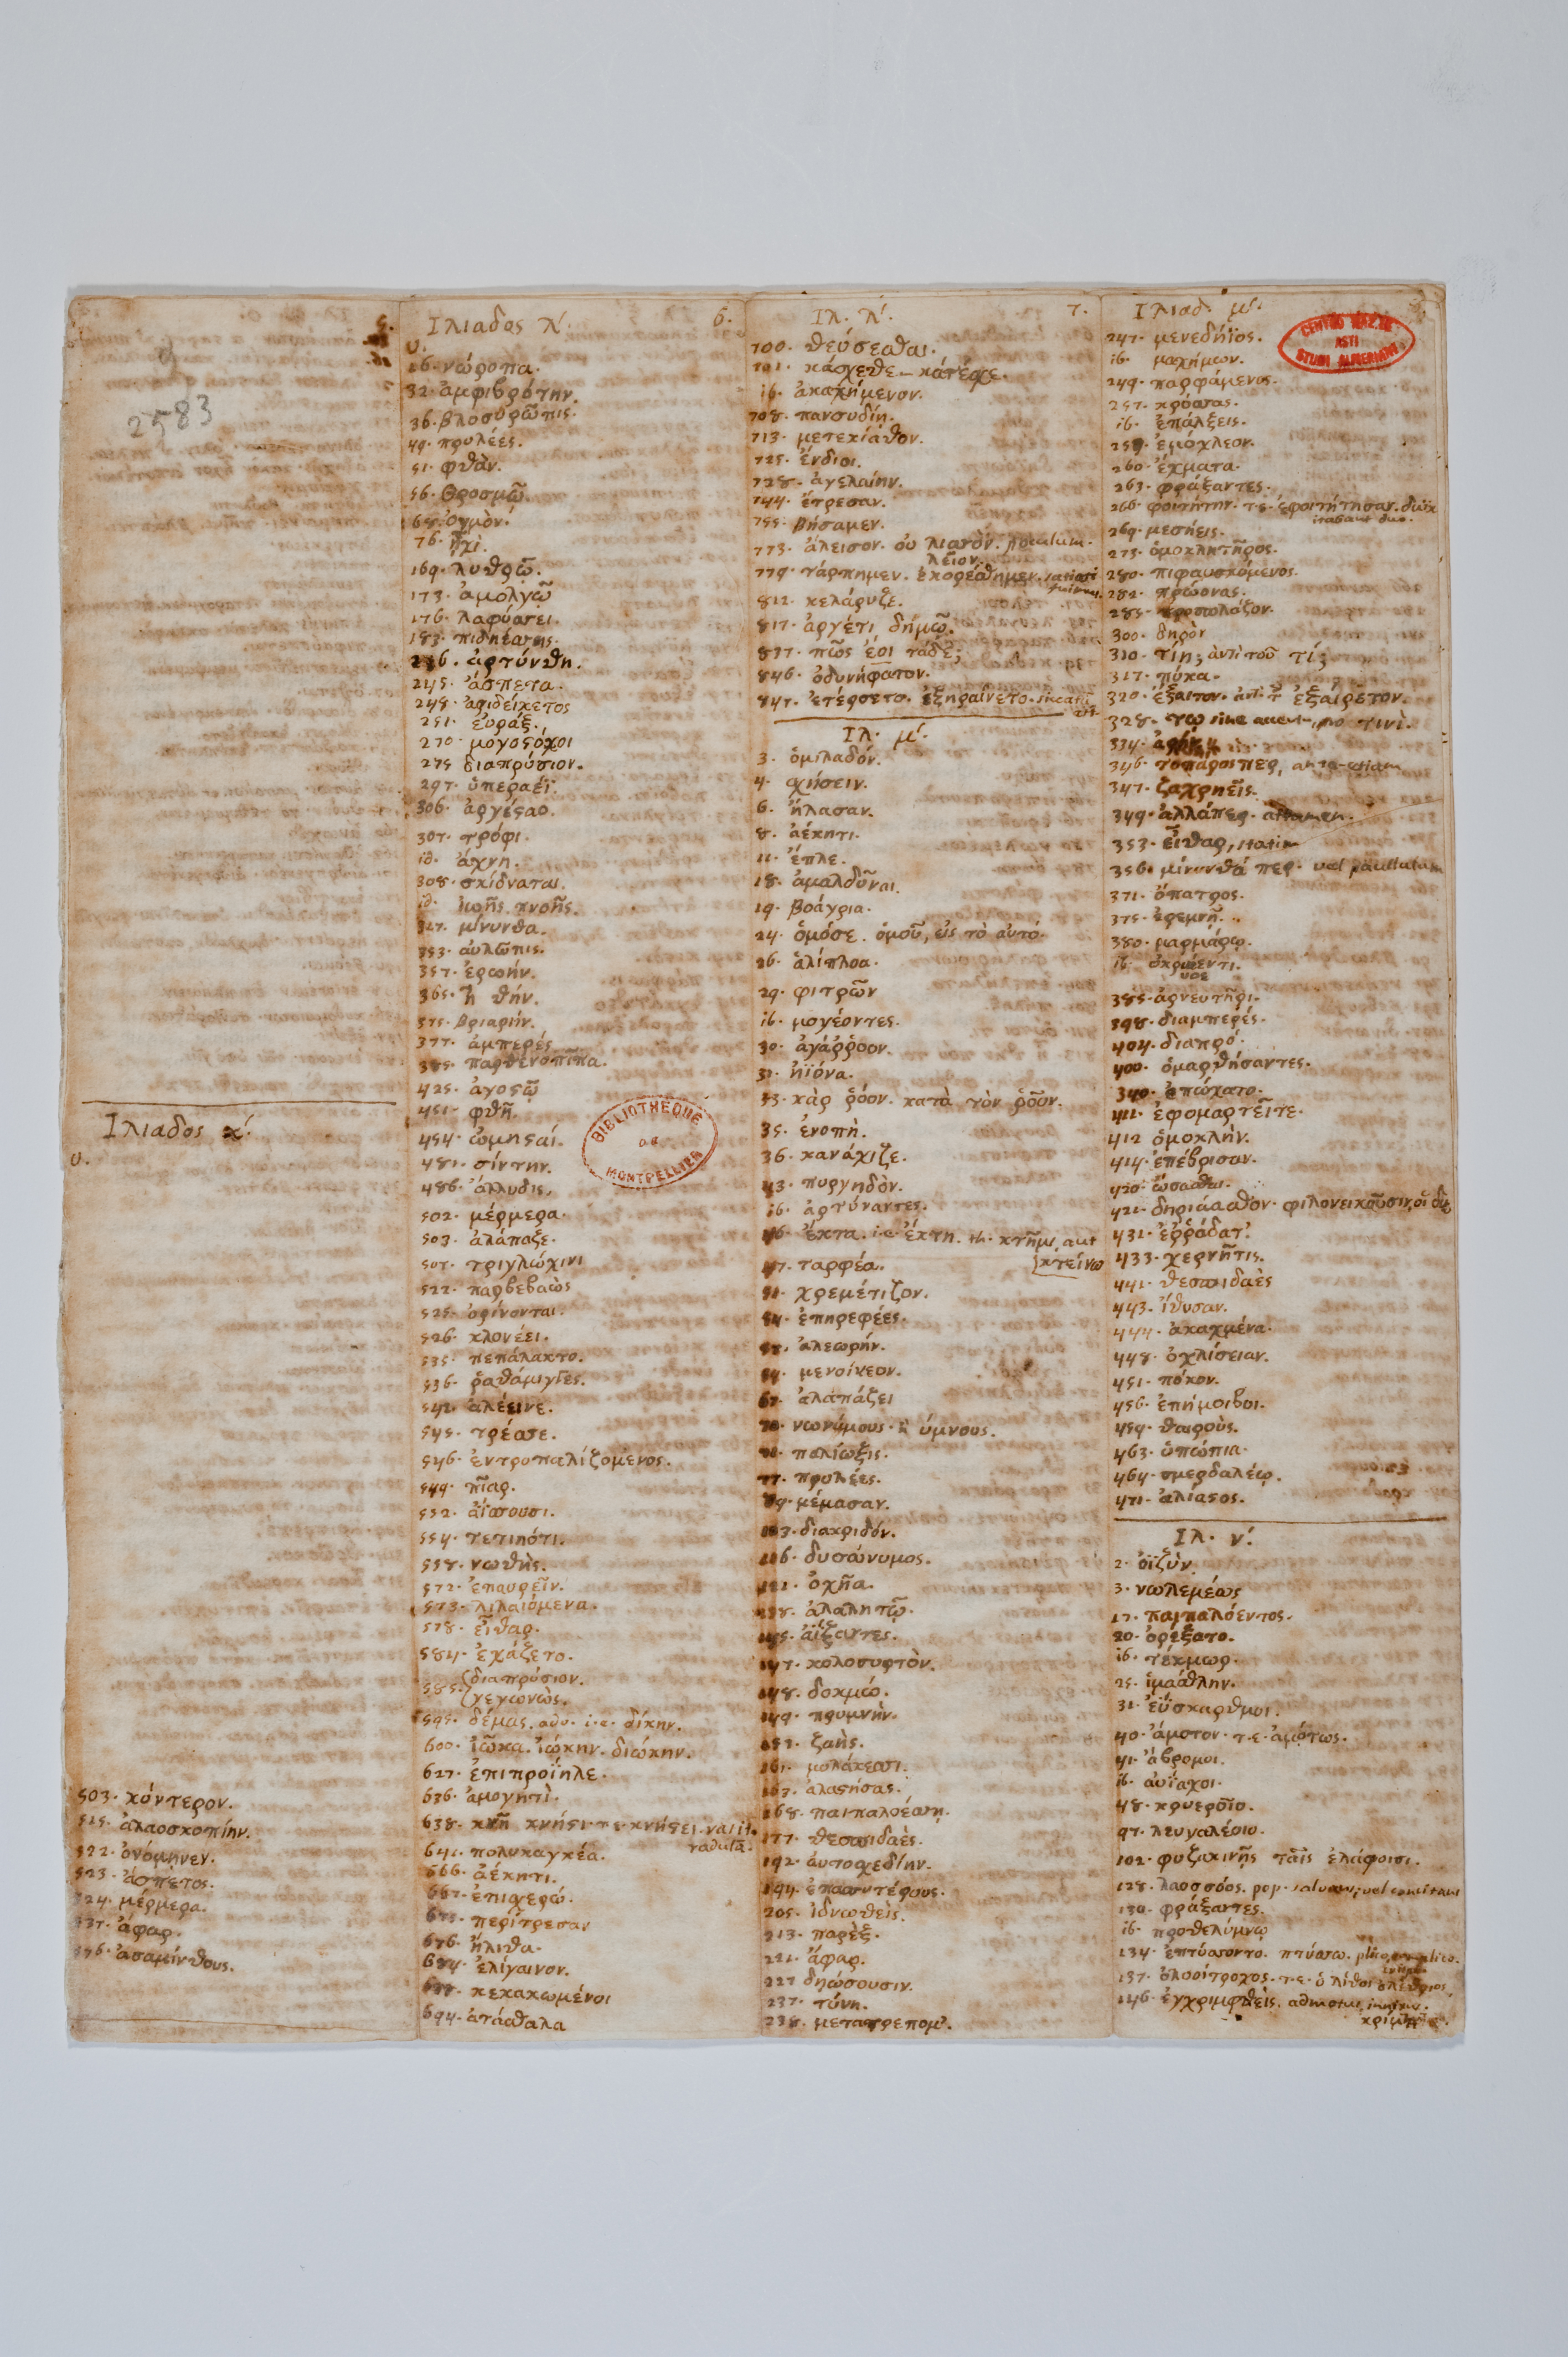 5.
2583
Ιλιαδος κ'.
υ.
503. κύντερον.
515. ἀλαοσκοπίην.
522. ὀνόμηνεν.
523. ἄσπετος.
524. μέρμερα.
537. ἄφαρ.
576. ἀσαμίνθους.
Ιλιαδος λ'. 6.
υ.
16. νώροπα.
32. ἀμφιβρότην.
36. βλοσυρῶπις.
49. πρυλέες.
51. φθὰν.
56. θρωσμῶ
68. ὄγμον.
76. ἧχι.
169. λυθρῶ.
173. ἀμολγῶ
176. λαφύσσει.
183. πιδηέσσης.
216. ἀρτύνθη.
245. ἄσπετα.
248. ἀριδείκετος
251. εὐράξ.
270. μογοςόκοι
275 διαπρύσιον.
297. ὑπεραέϊ.
306. ἀργέςαο.
307. τρόφι.
ib. ἄχνη.
308. σκίδναται.
ib. ἰωῆς. πνοῆς.
317. μίνυνθα.
353. αὐλῶπις.
357. ἐρωήν.
365. ἦ θήν.
375. βριαρήν.
377. ἀμπερές
385. παρθενοπῖπα.
425. ἀγοςῶ
451. φθῆ.
454. ὠμηςαί.
481. σίντην.
486. ἄλλυδις.
502. μέρμερα.
503. ἀλάπαξε.
507. τριγλώχινι
522. παρβεβαὼς
525. ὀρίνονται.
526. κλονέει.
535. πεπάλακτο.
536. ῥαθάμιγγες.
542. ἀλέεινε.
545. τρέσσε.
546. ἐντροπαλιζόμενος.
549. πῖαρ.
552. ἀΐσσουσι.
554. τετιηότι.
558. νωθὴς.
572. ἐπαυρεῖν.
573. λιλαιόμενα.
578. εἶθαρ.
584. ἐχάζετο.
585. διαπρύσιον.
γεγωνὼς.
595. δέμας. αδυ. i.e. δίκην.
600. ἰῶκα. ἰώκην. διώκην.
627. ἐπιπροΐηλε.
636. ἀμογητὶ.
638. κνῆ κνῆςι. τ.ε. κνήςει.
641. πολυκαγκέα.
666. ἀέκητι.
667. ἐπισχερώ.
673. περίτρεσαν
676. ἤλιθα.
684. ἐλίγαινον.
688. κεκακωμένοι
694. ἀτάσθαλα
Ιλ. λ'. 7.
700. θεύσεσθαι.
701. κάσχεθε – κάτεσχε.
ib. ἀκαχήμενον.
708. πανσυδίῃ.
713. μετεκίαθον.
725. ἔνδιοι.
728. ἀγελαίην.
744. ἔτρεσαν.
755. βήσαμεν.
773. ἄλεισον. οὐ λιανὸν. poculum.
λεῖον.
779. τάρπημεν. ἐκορέσθημεν. satiati
fuimus.
812. κελάρυζε.
817. ἀργέτι δήμῶ.
837. πῶς ἔοι τάδε;
846. ὀδυνήφατον.
847. ἐτέρσετο. ἐξηραίνετο.
Ιλ. μ'.
3. ὁμιλαδόν.
4. σχήσειν.
6. ἤλασαν.
8. ἀέκητι.
11. ἔπλε.
18. ἀμαλδῦναι.
19. βοάγρια.
24. ὁμόσε. ὁμοῦ, εἰς τὸ αὐτό.
26. ἁλίπλοα.
29. φιτρῶν
ib. μογέοντες.
30. ἀγάῤῥοον.
31. ἠϊόνα.
33. κὰρ ῥόον. κατὰ τὸν ῥοῦν.
35. ἐνοπὴ.
36. κανάχιζε.
43. πυργηδὸν.
ib. ἀρτύναντες.
46. ἔκτα. i.e. ἔκτη. th. κτῆμι, aut
κτείνω
47. ταρφέα.
51. χρεμέτιζον.
54. ἐπηρεφέες.
57. ἀλεωρήν.
59. μενοίνεον.
67. ἀλαπάζει
70. νωνύμους. ἢ ὑμνους.
71. παλίωξις.
77. πρυλέες.
89. μέμασαν.
103. διακριδόν.
116. δυσώνυμος.
121. ὀχῆα.
138. ἀλαλητῶ.
145. ἀΐξαντες.
147. κολοσυρτὸν.
148. δοχμώ.
149. πρυμνὴν.
157. ζαὴς.
161. μυλάκεσσι.
163. ἀλαςήσας.
168. παιπαλοέσσῃ.
177. θεσπιδαὲς.
192. αὐτοσχεδίην.
194. ἐπασσυτέρους.
205. ἰδνωθεὶς.
213. παρὲξ.
221. ἄφαρ.
227 δῃώσουσιν.
237. τύνη.
238. μετατρέπομ'.
Ιλιαδ. μ'.
CENTRO NAZ.LE
ASTI
STUDI ALFIERIANI
247. μενεδήϊος.
ib. μαχήμων.
249. παρφάμενος.
257. κρόσσας.
ib. ἐπάλξεις.
259. ἐμόχλεον.
260. ἔχματα.
263. φράξαντες.
266. φοιτήτην. τ.ε. ἐφοιτήτησαν.
269. μεσήεις.
273. ὁμοκλητῆρος.
280. πιφαυσκόμενος.
282. πρώονας.
285. προσπλάζον.
300. δηρὸν
310. τίη; ἀντὶ τοῦ τί;
317. πύκα.
320. ἔξαιτον. ἀντ. τ ἐξαίρετον.
328. τῳ sine accent. pro τινὶ.
346. τοπάροιπερ, antea etiam
347. ζαχρηεῖς.
349. ἀλλάπερ. attamen.
353. εἶθαρ, statim
356. μίνυνθά περ. vel paullulum
371. ὄπατρος.
375. ἐρεμνῇ.
380. μαρμάρῳ.
ib. ὀκριόεντι.
385. ἀρνευτῆρι.
398. διαμπερές.
404. διαπρό.
400. ὁμαρτήσαντες.
340. ἐπώχατο.
411. ἐφομαρτεῖτε.
412 ὁμοκλὴν.
414. ἐπέβρισαν.
420. ὤσασθαι.
421. δηριάασθον. φιλονεικοῦσιν, οἱ δύο
431. ἐῤῥάδατ'
433. χερνῆτις.
441. θεσπιδαὲς
443. ἴθυσαν.
444. ἀκαχμένα.
448. ὀχλίσειαν.
451. πόκον.
456. ἐπημοιβοι.
459. θαιροὺς.
463. ὑπώπια.
464. σμερδαλέῳ.
471. ἀλίαςος.
Ιλ. ν'.
2. ὀϊζὺν
3. νωλεμέως
17. παιπαλόεντος.
20. ὀρέξατο.
ib. τέκμωρ.
25. ἱμάσθλην.
31. ἐΰσκαρθμοι.
40. ἄμοτον. τ.ε. ἀμότως.
41. ἄβρομοι.
ib. αὐΐαχοι.
48. κρυεροῖο.
97. λευγαλέοιο.
102. φυζακινῇς ταῖς ἐλάφοισι.
128. λαοσσόος. pop. salvans, vel concitans
130. φράξαντες.
ib. προθελύμνῳ
134. ἐπτύσσοντο. πτύσσω.
137. ὀλοοίτροχος. τ.ε. ὁ λίθος ὀλέθριος.
146. ἐγχριμφθεὶς.
BIBLIOTHEQUE
DE
MONTPELLIER